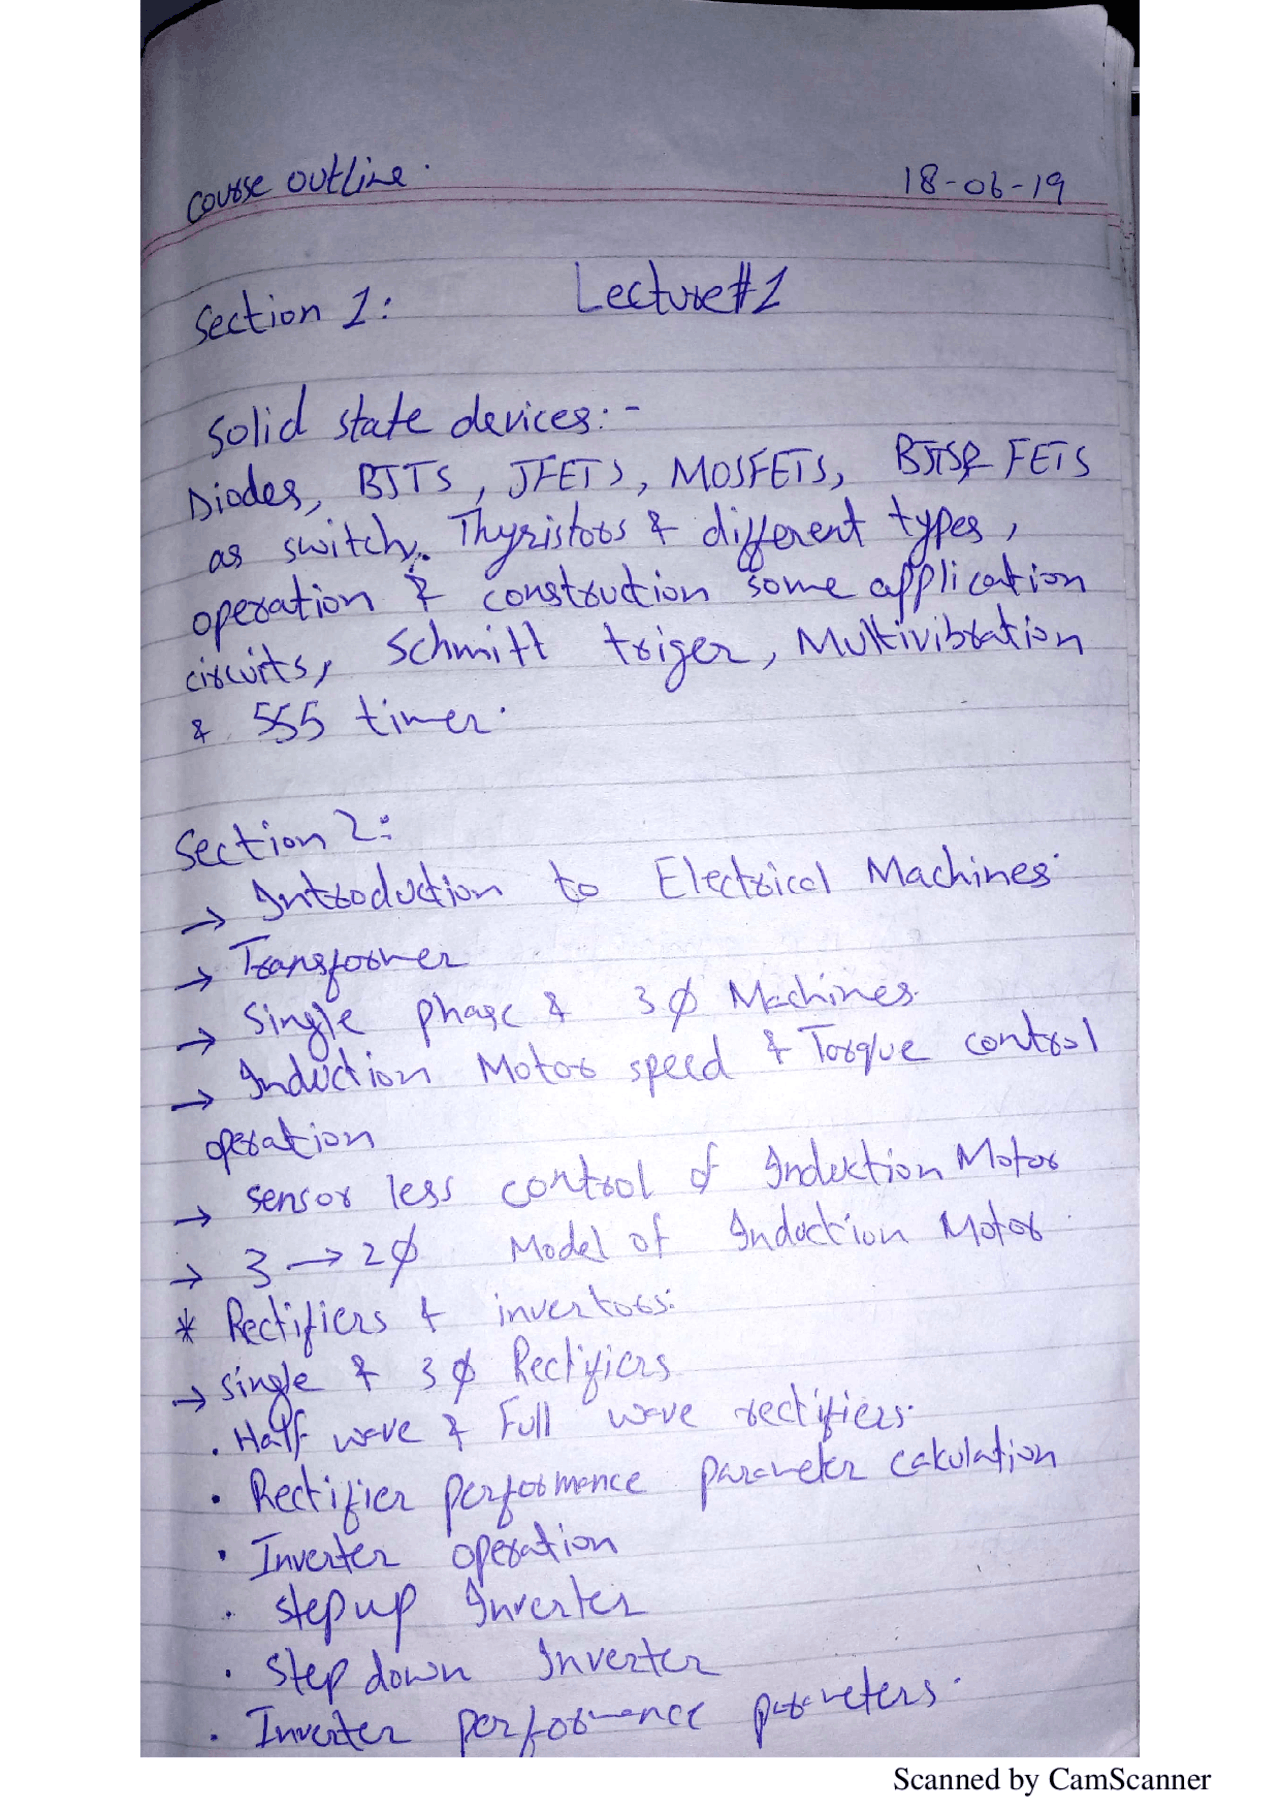 course outline.
18-06-19
Lecture#1
Section 1:
Solid state devices:-
Diodes, BJTS, JFETS, MOSFETS, BJTS& FETS
as switch, Thyristors & different types,
operation & construction some application
circuits, Schmitt triger, Multivibration
& 555 timer.
Section 2:
→ Introduction to Electrical Machines.
→ Transformer
→ Single phase & 3 φ Machines.
→ Induction Motor speed & Torque control
operation
→ sensor less control of Induction Motor
→ 3 → 2 φ Model of Induction Motor.
* Rectifiers & invertors:
→ single & 3 φ Rectifiers
. Half wave & Full wave rectifiers.
• Rectifier performance parameter calculation
• Inverter operation
• Step up Inverter
• Step down Inverter
• Inverter performance parameters.
Scanned by CamScanner